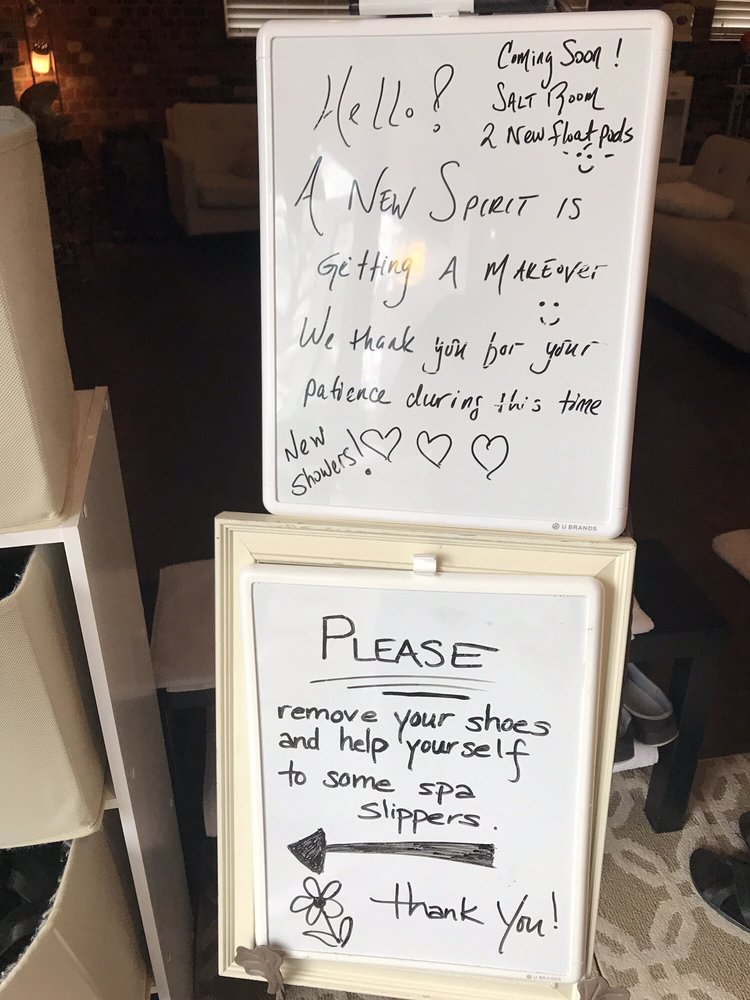 Hello!
Coming Soon!
SALT ROOM
2 New float pods
A NEW SPIRIT IS
Getting A MAKEOVER
We thank you for your
patience during this time
New
showers!
U BRANDS
PLEASE
remove your shoes
and help yourself
to some spa
slippers.
thank you!
U BRANDS